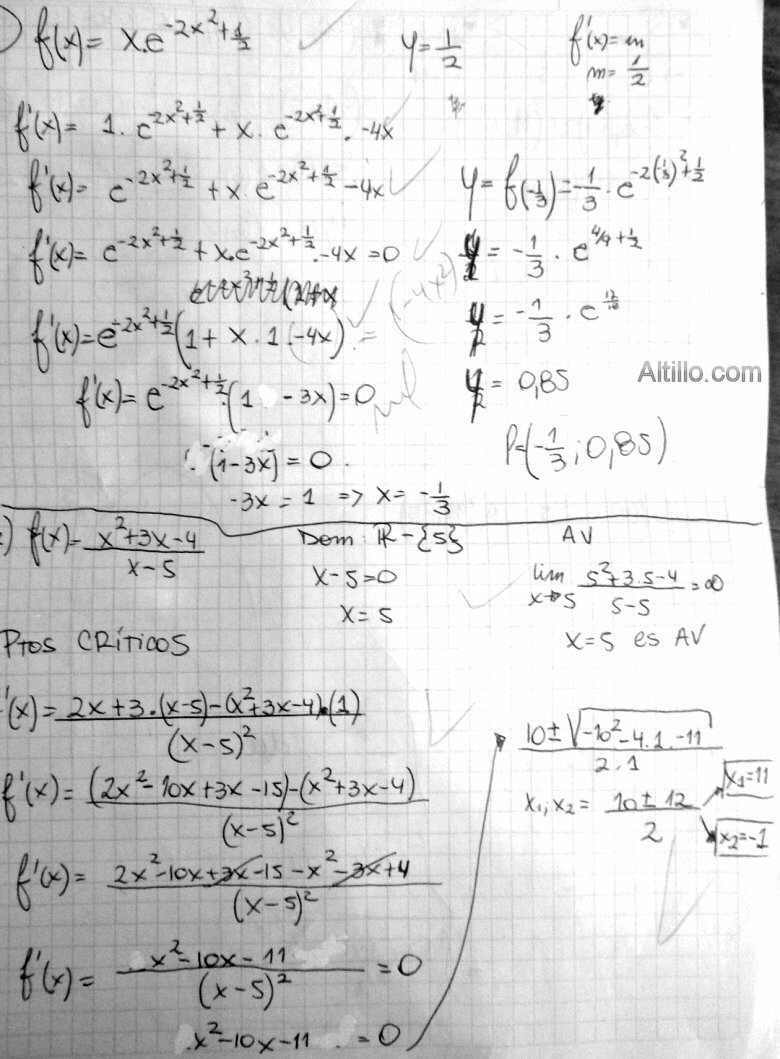 f(x) = x.e^{-2x^2+1/2}
y = 1/2
f'(x) = m
m = 1/2
f'(x) = 1. e^{-2x^2+1/2} + x. e^{-2x^2+1/2}. -4x
f'(x) = e^{-2x^2+1/2} + x. e^{-2x^2+1/2} -4x
f'(x) = e^{-2x^2+1/2} + x.e^{-2x^2+1/2}. -4x = 0
f'(x) = e^{-2x^2+1/2} (1 + x . 1 . (-4x) . =
(-4x^2)
f'(x) = e^{-2x^2+1/2}. (1 - 3x) = 0
(1-3x) = 0
-3x = 1 => x = -1/3
y = f(-1/3) = -1/3 . e^{-2(1/3)^2+1/2}
y = -1/3 . e^{4/9+1/2}
y = -1/3 . e
y = 0,85
Altillo.com
P=(-1/3; 0,85)
f(x) = (x^2+3x-4)/(x-5)
Dom: R - {5}
x-5=0
x = 5
AV
lim x→5 (5^2+3.5-4)/(5-5) = ∞
x=5 es AV
Ptos CRíticos
'(x) = (2x+3.(x-5)-(x^2+3x-4).(1))/(x-5)^2
f'(x) = ((2x^2-10x+3x-15)-(x^2+3x-4))/(x-5)^2
f'(x) = (2x^2-10x+3x-15-x^2-3x+4)/(x-5)^2
f'(x) = (x^2-10x-11)/(x-5)^2 = 0
x^2-10x-11 = 0
(10±√(-10^2-4.1.-11))/(2.1)
x1, x2 = (10±12)/2
x1=11
x2=-1